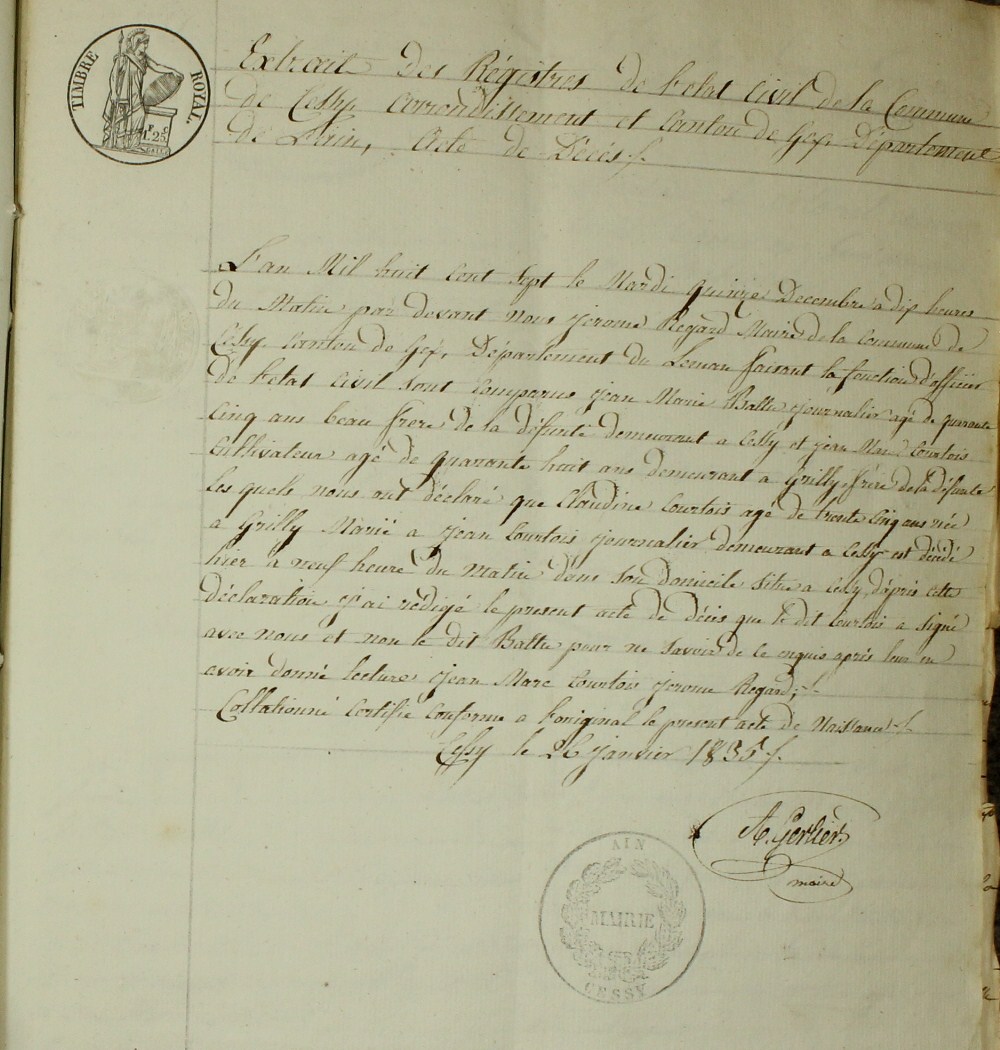 TIMBRE ROYAL.
1F. 25c
Extrait des Régistres de l'etat civil de la Commune
de Cessy. arrondissement et canton de Gex. Département
de L'ain, Acte de Décés ./.
L'an Mil huit cent sept le Mardi quinze Decembre a dix heures
du Matin par devant nous jerome Regard Maire de la commune de
Cessy. Canton de Gex, Département du Leman faisant la fonction d'officier
de l'etat civil sont comparus jean Marie Battu journalier agé de quarante
Cinq ans beau frere de la défunte demeurant a Cessy et jean Marc Courtois
Cultivateur agé de quarante huit ans demeurant a Grilly, frère de la défunte
les quels nous ont déclaré que Claudine Courtois agé de trente Cinq ans née
a Grilly Marié a jean Courtois journalier demeurant a Cessy est décédé
hier à neuf heure du Matin dans son domicile situe a Cessy, d'après cette
déclaration j'ai rédigé le present acte de décès que le dit Courtois a signé
avec nous et non le dit Battu pour ne savoir de ce enquis après leur en
avoir donné lecture jean Marc Courtois jerome Regard ;-/-
Collationné certifie conforme a l'original le present acte de Naissance -/-
Cessy le 26 janvier 1835 ./.
A. Gerlier
maire
AIN
MAIRIE
CESSY